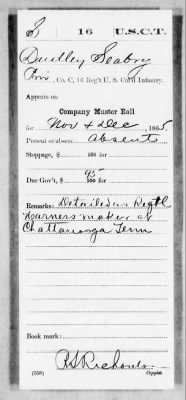 S 16 U.S.C.T.
Dudley Seabry
Priv, Co. C, 16 Reg't U. S. Col'd Infantry.
Appears on
Company Muster Roll
for Nov & Dec, 1865
Present or absent Absent
Stoppage, $ 100 for
Due Gov't, $ 95/100 for
Remarks: Detailed as Regtl
Harness maker at
Chattanooga Tenn
Book mark:
Richards
(358) Copyist.